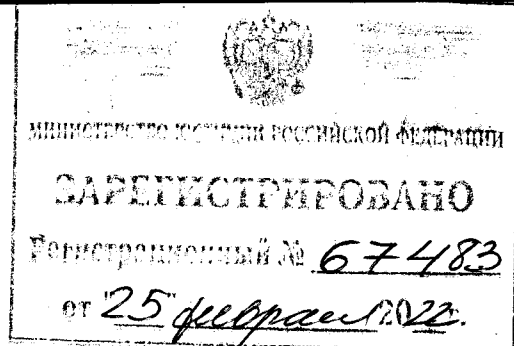 МИНИСТЕРСТВО ЮСТИЦИИ РОССИЙСКОЙ ФЕДЕРАЦИИ
ЗАРЕГИСТРИРОВАНО
Регистрационный № 67483
от "25" февраля 2022.